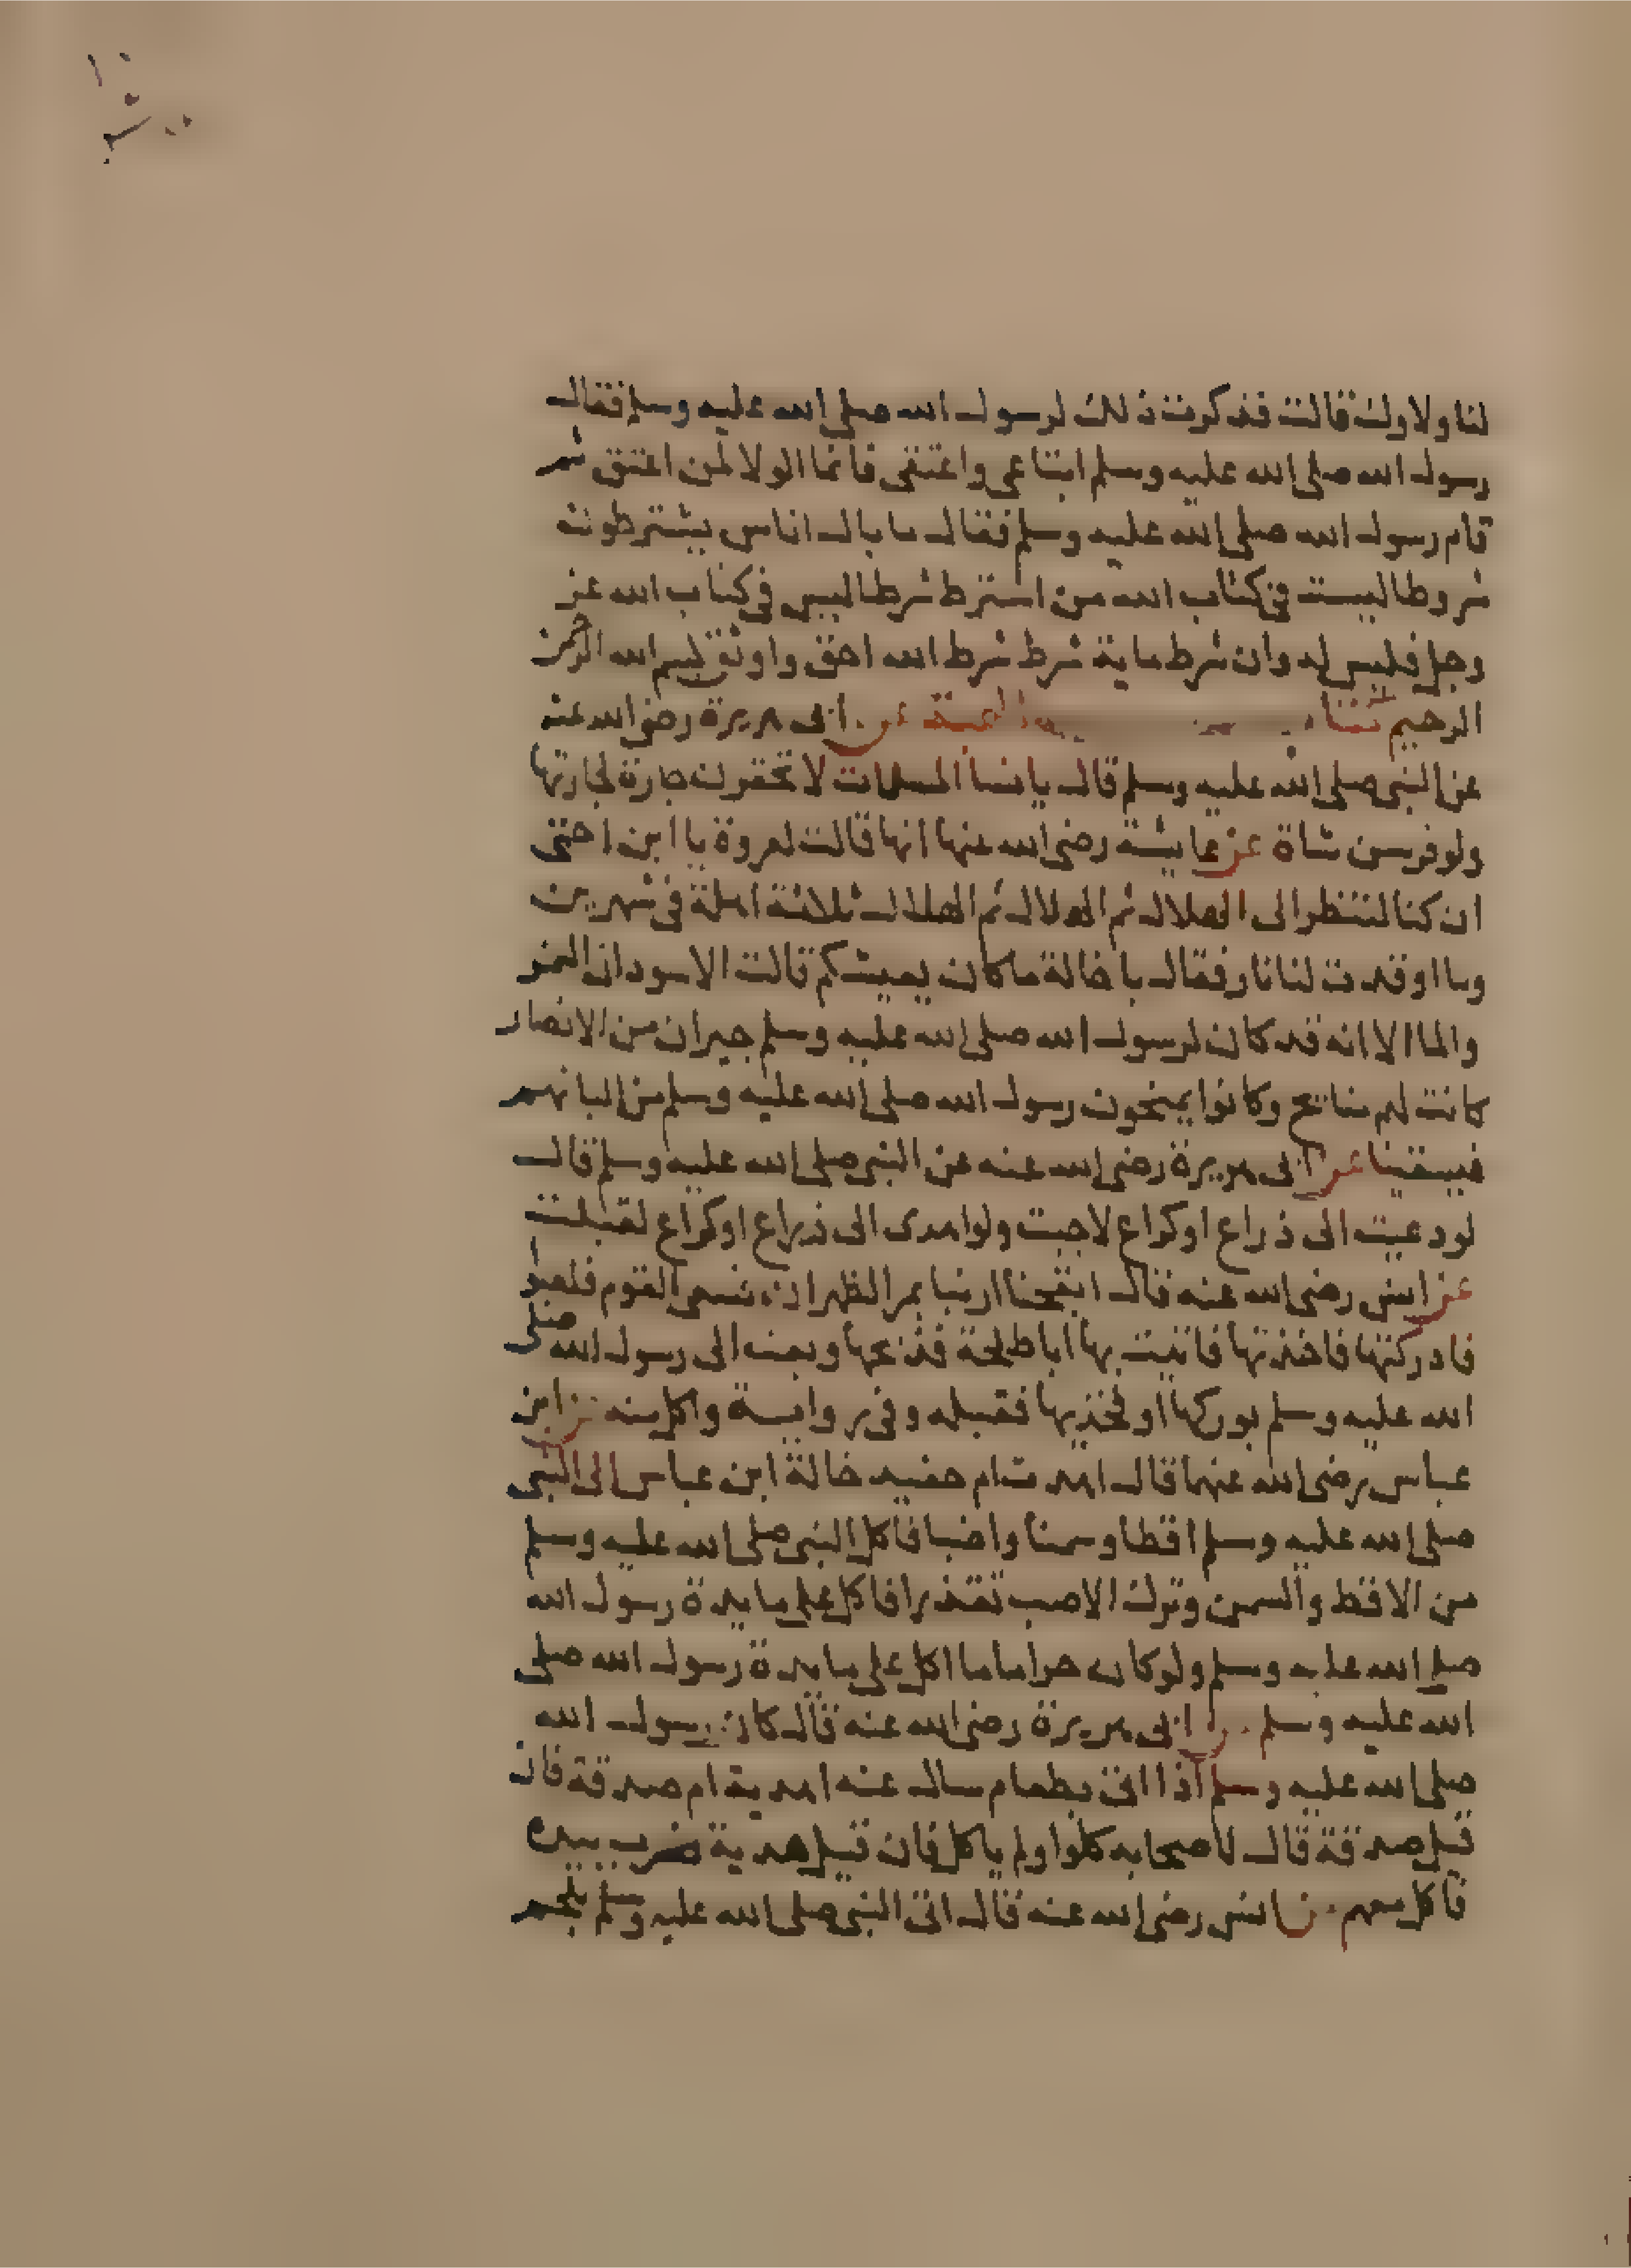 لنا ولاوك قالت فذكرت ذلك لرسول الله صلى الله عليه وسلم فقال
رسول الله صلى الله عليه وسلم ابتاعي واعتقى فانما الولا لمن اعتق ثم
قام رسول الله صلى الله عليه وسلم فقال ما بال اناس يشترطون
شروطا ليست في كتاب الله من اشترط شرطا ليس في كتاب الله عز
وجل فليس له وان شرط ماية شرط شرط الله احق واوثق بسم الله الرحمن
الرحيم عن ابى هريرة رضى الله عنه
عن النبي صلى الله عليه وسلم قال يا نسا المسلمات لا تحقرن جارة لجارتها
ولو فرسن شاة عن عايشة رضى الله عنها انها قالت لعروة يا ابن اختى
ان كنا لننظر الى الهلال ثم الهلال ثم الهلال ثلاثة اهلة في شهرين
وما اوقدت لنا نار فقال يا خالة ما كان يعيشكم قالت الاسودان التمر
والما الا انه قد كان لرسول الله صلى الله عليه وسلم جيران من الانصار
كانت لهم منائح وكانوا يمنحون رسول الله صلى الله عليه وسلم من البانهم
فيسقينا عن ابى هريرة رضى الله عنه عن النبي صلى الله عليه وسلم قال
لو دعيت الى ذراع او كراع لاجبت ولو اهدى الى ذراع او كراع لقبلت
عن انس رضى الله عنه قال انفجنا ارنبا بمر الظهران فسعى القوم فلغبوا
فادركتها فاخذتها فاتيت بها ابا طلحة فذبحها وبعث الى رسول الله صلى
الله عليه وسلم بوركها او فخذيها فقبله وفي رواية واكل منه عن ابن
عباس رضى الله عنهما قال اهدت ام حفيد خالة ابن عباس الى النبي
صلى الله عليه وسلم اقطا وسمنا واضبا فاكل النبي صلى الله عليه وسلم
من الاقط والسمن وترك الاضب تقذرا فاكل على مايدة رسول الله
صلى الله عليه وسلم ولو كان حراما ما اكل على مايدة رسول الله صلى
الله عليه وسلم عن ابى هريرة رضى الله عنه قال كان رسول الله
صلى الله عليه وسلم اذا اتى بطعام سال عنه اهدية ام صدقة فان
قيل صدقة قال لاصحابه كلوا ولم ياكل فان قيل هدية ضرب بيده
فاكل معهم عن انس رضى الله عنه قال اتى النبي صلى الله عليه وسلم بلحم